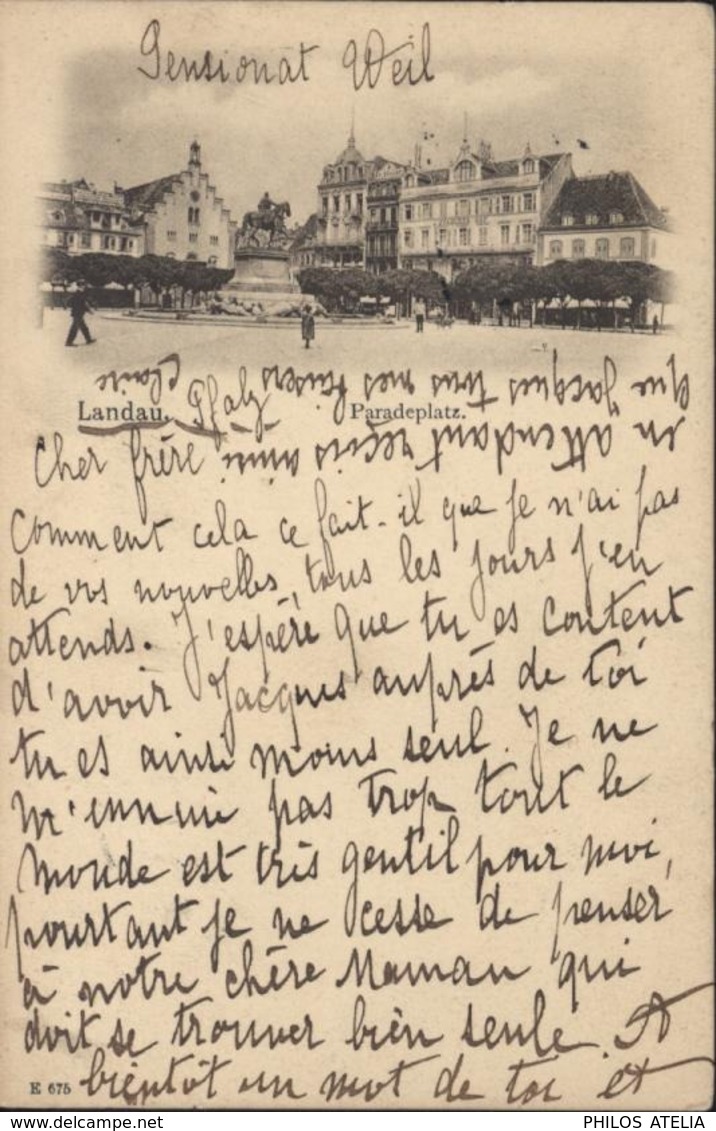 Pensionat Weil
Landau. Pfalz Paradeplatz.
Cher frère
Comment cela ce fait-il que je n'ai pas
de vos nouvelles, tous les jours j'en
attends. J'espère que tu es content
d'avoir Jacques auprès de toi
tu es ainsi moins seul. Je ne
m'ennuie pas trop tout le
monde est très gentil pour moi,
pourtant je ne cesse de penser
à notre chère Maman qui
doit se trouver bien seule. A
bientôt un mot de toi et
en attendant reçois ainsi
que Jacques tous mes baisers
Claire
E 675
PHILOS ATELIA